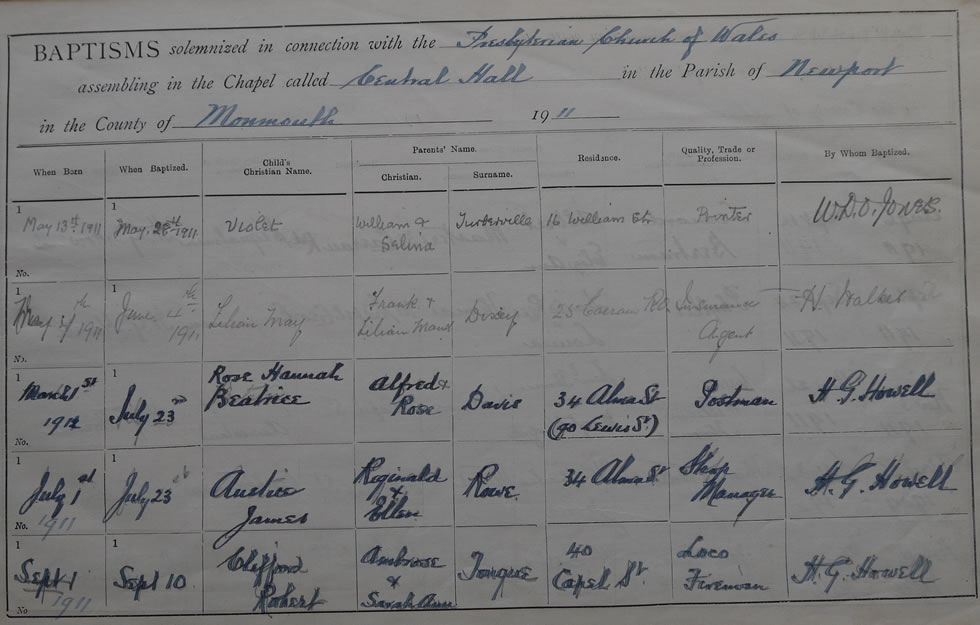 BAPTISMS solemnized in connection with the Presbyterian Church of Wales
assembling in the Chapel called Central Hall in the Parish of Newport
in the County of Monmouth 1911
When Born When Baptized. Child's Christian Name. Parents' Name. Christian. Surname. Residence. Quality, Trade or Profession. By Whom Baptized.
1 1
May 13th 1911 May 28th 1911 Violet William & Turberville 16 William St. Printer W.D.O. Jones.
Selina
No.
1 1
May 1911 June 1911 Lilian May Frank & Dixey 25 Rd Insurance H. Walker
Lilian Maud Agent
No.
1 1
March 1st Rose Hannah Alfred &
1911 July 23rd Beatrice Rose Davis 34 Alma St Postman H. G. Howell
(90 Lewis St)
No.
1 1
July 1st July 23rd Austice Reginald Rowe 34 Alma St Shop H. G. Howell
1911 James & Manager
Ellen
No.
1 1
Sept 1 Sept 10 Clifford Ambrose 40 Loco H. G. Howell
1911 Robert & Capel St Fireman
Sarah Ann
No